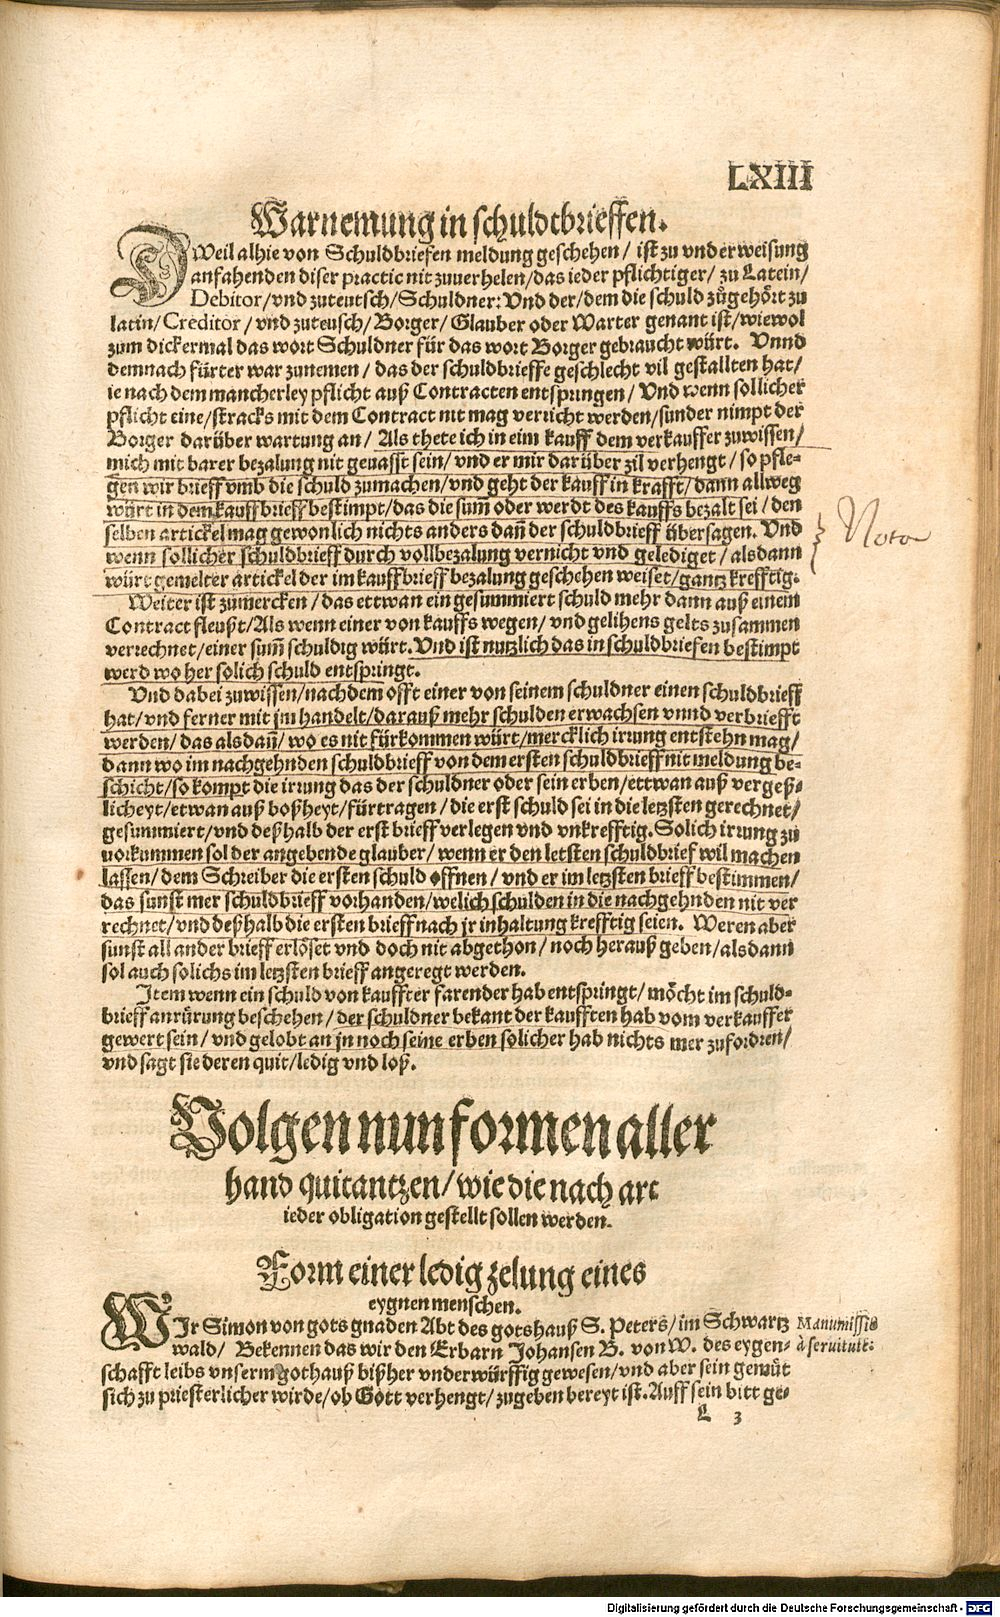 LXIII
Warnemung in schuldtbrieffen.
DWeil alhie von Schuldbriefen meldung geschehen / ist zu vnderweisung
anfahenden diser practic nit zuuerhelen/das ieder pflichtiger/ zu Latein/
Debitor/vnd zuteutsch/Schuldner: Vnd der/dem die schuld zůgehört zu
latin/Creditor / vnd zuteusch/Borger/ Glauber oder Warter genant ist/wiewol
zum dickermal das wort Schuldner für das wort Borger gebraucht würt. Vnnd
demnach fürter war zunemen / das der schuldbrieffe geschlecht vil gestallten hat/
ie nach dem mancherley pflicht auß Contracten entspringen/ Vnd wenn sollicher
pflicht eine/stracks mit dem Contract nit mag verricht werden/sunder nimpt der
Borger darüber wartung an/ Als thete ich in eim kauff dem verkauffer zuwissen/
mich mit barer bezalung nit geuasst sein/vnd er mir darüber zil verhengt/so pfle-
gen wir brieff vmb die schuld zumachen/vnd geht der kauff in krafft/dann allweg
würt in dem kauffbrieff bestimpt/das die sum̃ oder werdt des kauffs bezalt sei / den
selben artickel mag gewonlich nichts anders dañ der schuldbrieff übersagen. Vnd
wenn sollicher schuldbrieff durch vollbezalung vernicht vnd gelediget / alsdann
würt gemelter artickel der im kauffbrieff bezalung geschehen weiset/gantz krefftig.
Nota
Weiter ist zumercken / das ettwan ein gesummiert schuld mehr dann auß einem
Contract fleußt/Als wenn einer von kauffs wegen/ vnd gelihens gelts zusammen
verrechnet/einer sum̃ schuldig würt. Vnd ist nutzlich das in schuldbriefen bestimpt
werd wo her solich schuld entspringt.
Vnd dabei zuwissen/nachdem offt einer von seinem schuldner einen schuldbrieff
hat/vnd ferner mit jm handelt/darauß mehr schulden erwachsen vnnd verbriefft
werden/ das alsdañ/ wo es nit fürkommen würt/mercklich irrung entstehn mag/
dann wo im nachgehnden schuldbrieff von dem ersten schuldbrieff nit meldung be-
schicht/so kompt die irrung das der schuldner oder sein erben/ettwan auß vergeß-
licheyt/etwan auß boßheyt/fürtragen / die erst schuld sei in die letzsten gerechnet/
gesummiert/vnd deßhalb der erst brieff verlegen vnd vnkrefftig. Solich irrung zu
uorkummen sol der angebende glauber/ wenn er den letsten schuldbrief wil machen
lassen/ dem Schreiber die ersten schuld offnen/ vnd er im letzsten brieff bestimmen/
das sunst mer schuldbrieff vorhanden/welich schulden in die nachgehnden nit ver
rechnet/vnd deßhalb die ersten brieff nach jr inhaltung krefftig seien. Weren aber
sunst all ander brieff erlöset vnd doch nit abgethon/ noch herauß geben/alsdann
sol auch solichs im letzsten brieff angeregt werden.
Item wenn ein schuld von kauffter farender hab entspringt/ möcht im schuld-
brieff anrürung beschehen/ der schuldner bekant der kaufften hab vom verkauffer
gewert sein/ vnd gelobt an jn noch seine erben solicher hab nichts mer zufordren/
vnd sagt sie deren quit/ledig vnd loß.
Volgen nun formen aller
hand quitantzen/ wie die nach art
ieder obligation gestellt sollen werden.
Form einer ledig zelung eines
eygnen menschen.
WIr Simon von gots gnaden Abt des gotshauß S. Peters/ im Schwartz
Manumissio
wald/ Bekennen das wir den Erbarn Johansen B. von W. des eygen-
à seruitute.
schafft leibs vnserm gothauß bißher vnderwürffig gewesen/vnd aber sein gemüt
sich zu priesterlicher wirde/ob Gott verhengt/zugeben bereyt ist. Auff sein bitt ge-
L 3
Digitalisierung gefördert durch die Deutsche Forschungsgemeinschaft - DFG